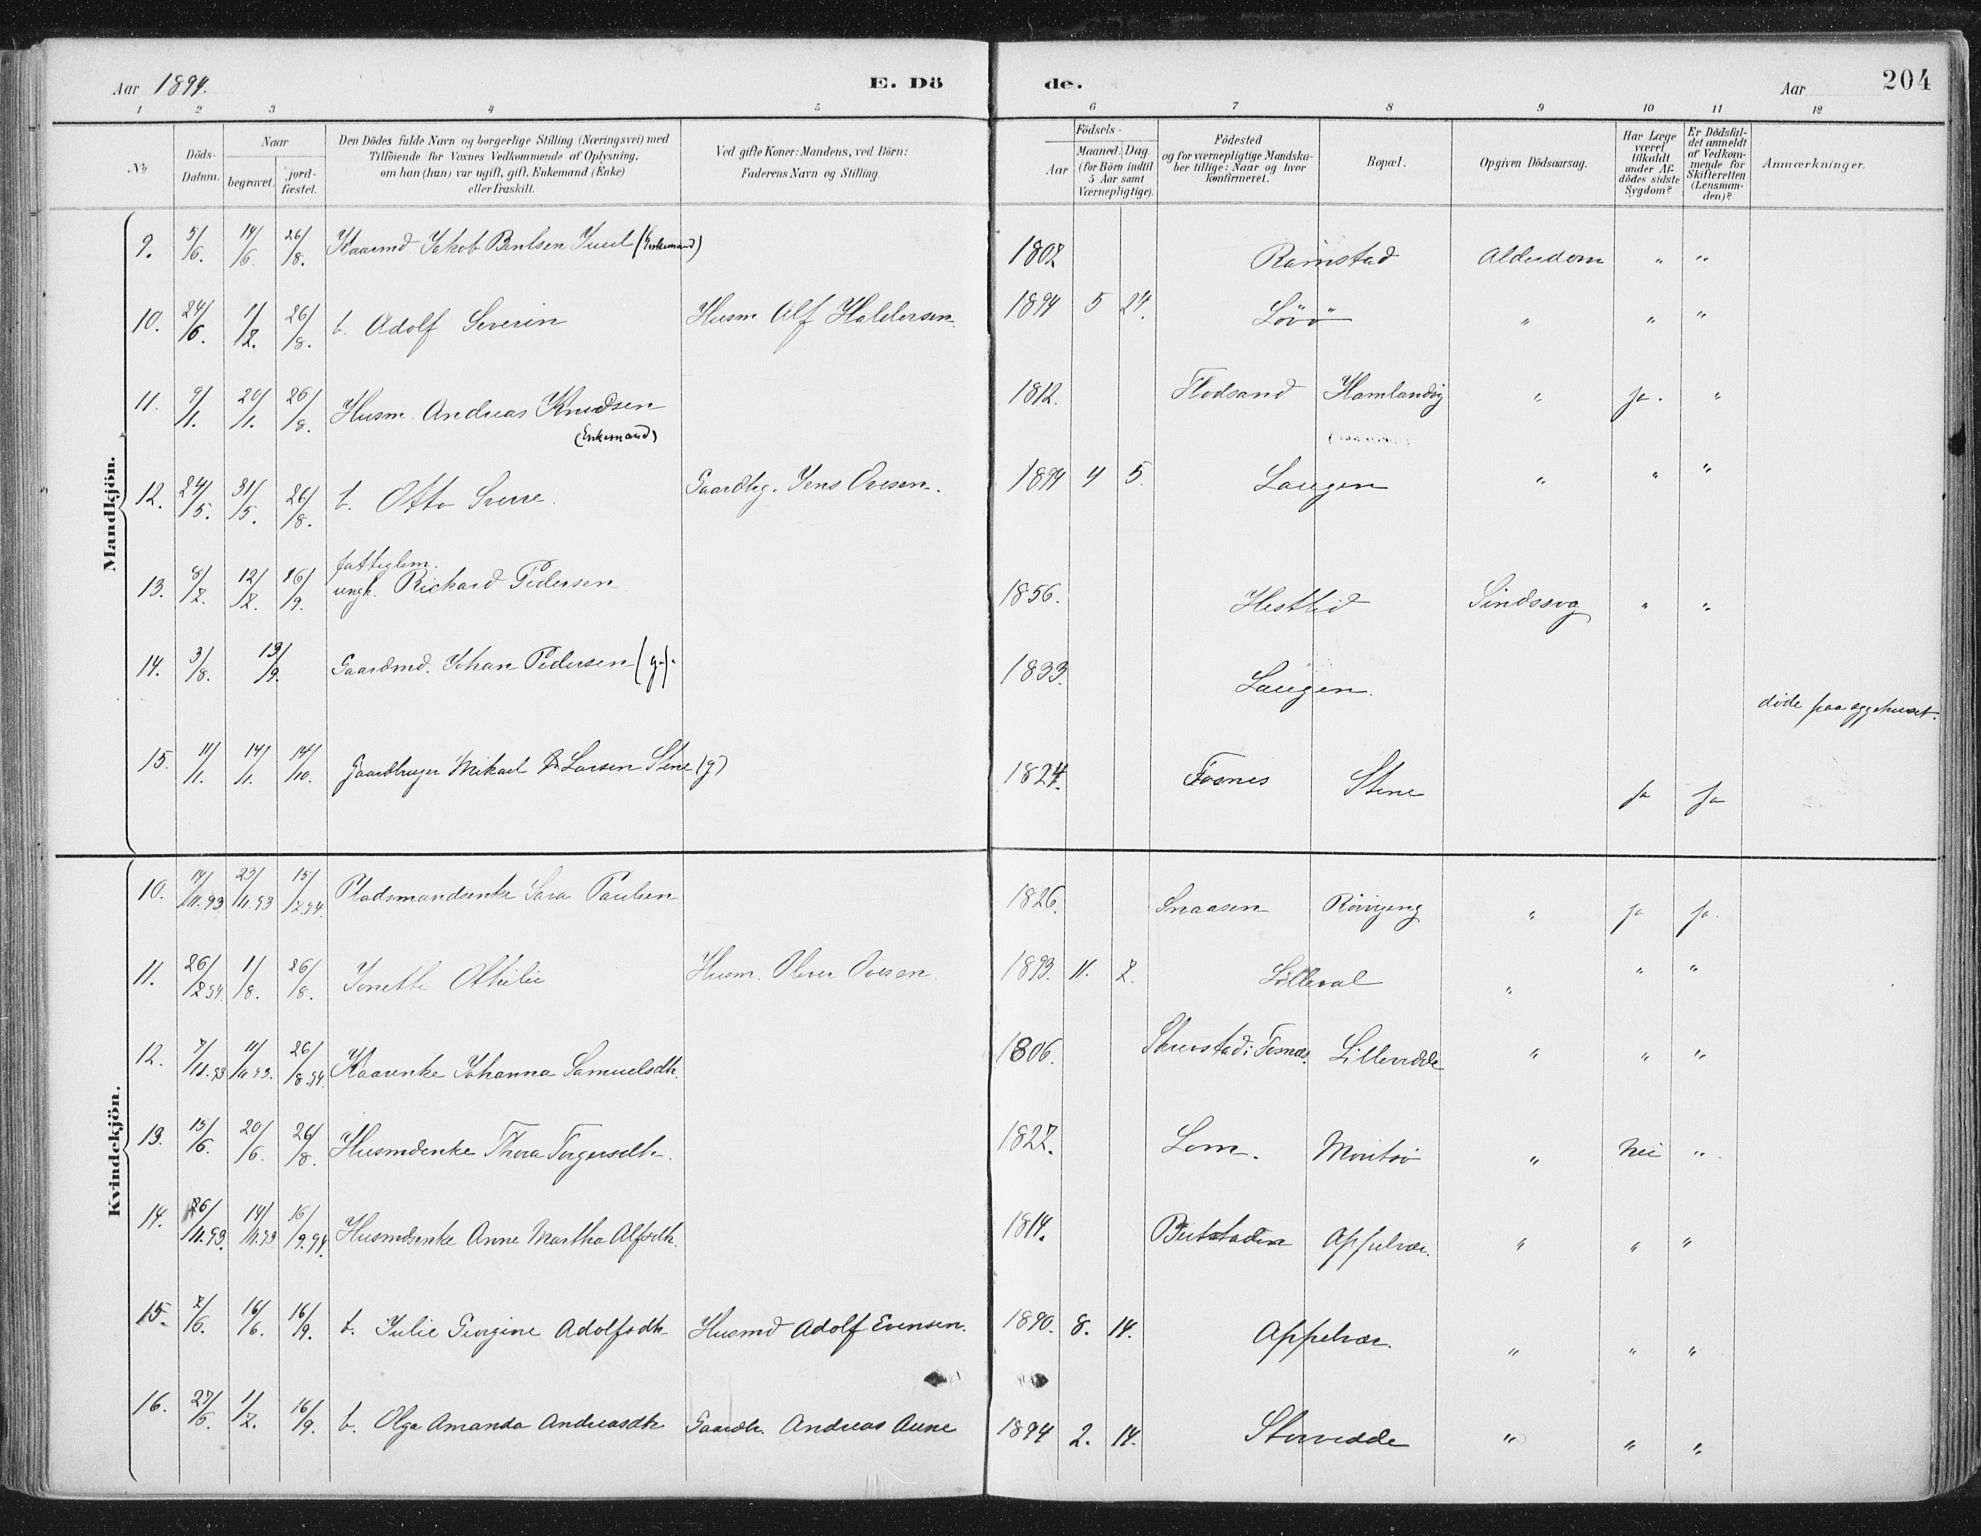 Aar 1894. E. Dö de. Aar 204
1 2 3 4 5 6 7 8 9 10 11 12
No. Döds-Datum. Naar begravet. jord-fæstet. Den Dödes fulde Navn og borgerlige Stilling (Næringsvei) med Tilföiende for Voxnes Vedkommende af Oplysning, om han (hun) var ugift, gift, Enkemand (Enke) eller fraskilt. Ved gifte Koner: Mandens, ved Börn: Faderens Navn og Stilling. Födsels- Aar Maaned. Dag (for Börn indtil 5 Aar samt Værnepligtige). Födested og for værnepligtige Mandskaber tillige: Naar og hvor konfirmeret. Bopæl. Opgiven Dödsaarsag. Har Læge været tilkaldt under Afdödes sidste Sygdom? Er Dödsfaldet anmeldt af Vedkommende for Skifteretten (Lensmanden)? Anmærkninger.
Mandkjön.
9. 5/6. 14/6. 26/8. Kaarmd. Jakob Bentsen Juul (Enkemand) 1802 Ramstad Alderdom " "
10. 24/6. 1/7. 26/8. b. Adolf Severin Husm. Alf Haldorsen. 1894 5 24. Lövö " " "
11. 9/1. 20/1. 26/8. Husm. Andreas Knudsen (Enkemand) 1812. Flodsand Hamlandvig " ja. "
12. 24/5. 31/5. 26/8. b. Otto Sverre. Gaardbg. Jens Ovesen. 1894 4 5. Laugen " " "
13. 8/7. 12/7. 16/9. fattiglem. ungk. Rickard Pedersen 1856. Hestlid Sindssvag " "
14. 3/8. 13/9. Gaardmd. Johan Pedersen (g.). 1833. Laugen. døde paa sygehuset.
15. 11/1. 14/1. 14/10. Gaardbruger Mikael Larsen Stene (g) 1824. Fosnes Stene ja ja
Kvindekjön.
10. 14/11.93 23/11.93 15/7.94. Pladsmandsenke Sara Paulsen 1826. Snaasen " ja ja.
11. 26/7.94. 1/8. 26/8. Jonette Othilie Husm. Oluer Ovesen. 1893. 11. 7. Lilleval " " "
12. 7/11.93 11/11.93. 26/8.94. Kaarenke Johanna Samuelsdtr. 1806. Skurstad i Fosnes. Lillevedde " " "
13. 15/6. 20/6. 26/8. Husmdenke Thora Torgersdtr. 1827. Lom. " Nei "
14. 26/11.93. 14/11.93 16/9.94. Husmdsenke Anne Martha Alfsdtr. 1814. Beitstaden Appelvær. " " "
15. 7/6. 16/6. 16/9. b. Julie Georgine Adolfsdtr Husmd Adolf Evensen. 1890. 8. 14. Appelvær. " " "
16. 27/6. 1/7. 16/9. b. Olga Amanda Andreasdtr Gaardbr. Andreas Aune 1894 2. 14. Storvedde " " "